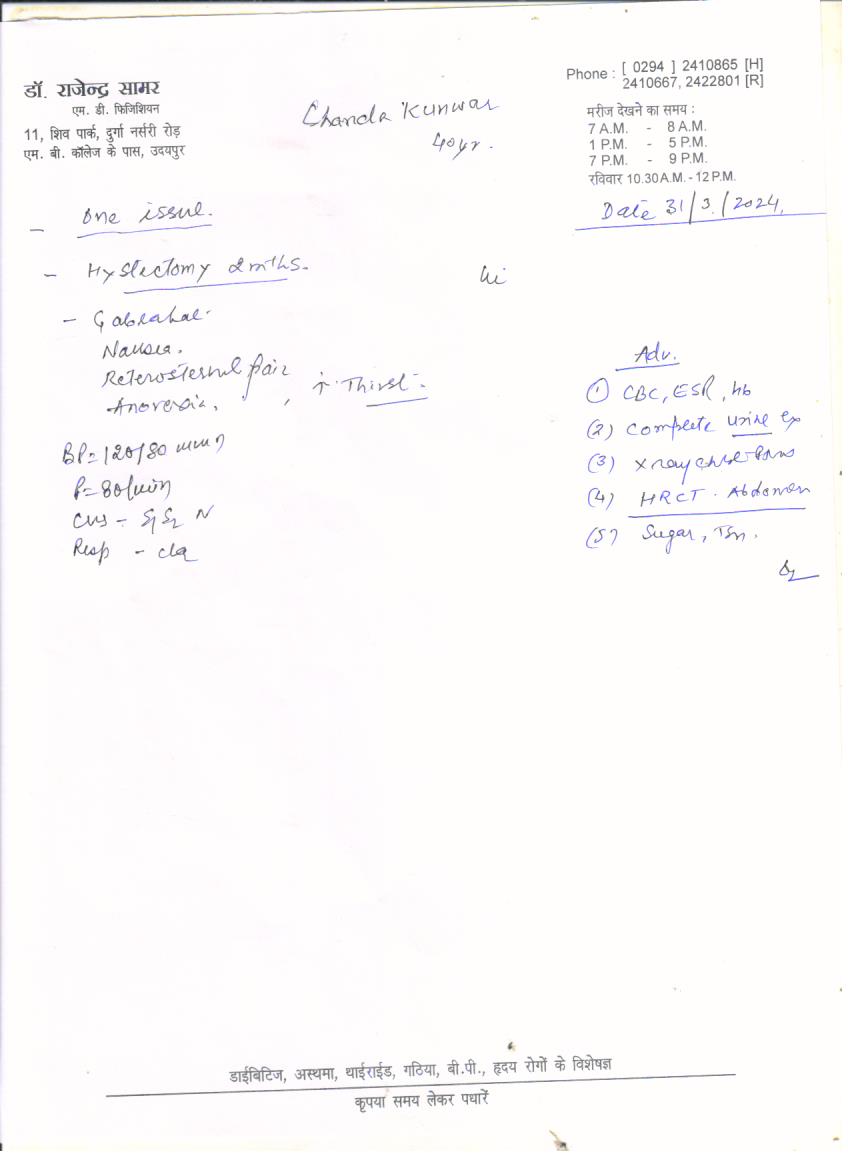 डॉ. राजेन्द्र सामर
एम. डी. फिजिशियन
11, शिव पार्क, दुर्गा नर्सरी रोड़
एम. बी. कॉलेज के पास, उदयपुर
Chanda Kunwar
40yr.
Phone : [ 0294 ] 2410865 [H]
2410667, 2422801 [R]
मरीज देखने का समय :
7 A.M. - 8 A.M.
1 P.M. - 5 P.M.
7 P.M. - 9 P.M.
रविवार 10.30 A.M. - 12 P.M.
Date 31/3/2024,
- One issue.
- Hystectomy 2 mths.
- Gabrahat.
Nausea.
Reterosternal pain
Anorexia, , ↑ Thirst -
BP = 120/80 mm
P = 80/min
CVS - S1 S2 N
Resp - cla
Adv.
(1) CBC, ESR, Hb
(2) Complete urine Ex
(3) X ray chest
(4) HRCT. Abdomen
(5) Sugar,
डाईबिटिज, अस्थमा, थाईराईड, गठिया, बी.पी., हृदय रोगों के विशेषज्ञ
कृपया समय लेकर पधारें